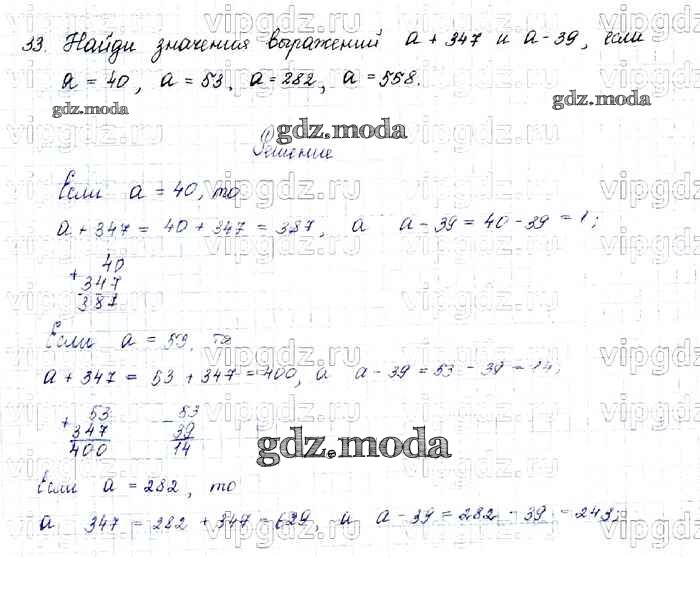 33. Найди значения выражений a + 347 и a - 39, если
a = 40, a = 53, a = 282, a = 558.
gdz.moda gdz.moda
gdz.moda
Решение
Если a = 40, то
a + 347 = 40 + 347 = 387, а a - 39 = 40 - 39 = 1;
+ 40
347
387
Если a = 53, то
a + 347 = 53 + 347 = 400, а a - 39 = 53 - 39 = 14;
+ 53 - 53
347 39
400 14
gdz.moda
Если a = 282, то
a 347 = 282 + 347 = 629, а a - 39 = 282 - 39 = 243;
vipgdz.ru vipgdz.ru vipgdz.ru vipgdz.ru